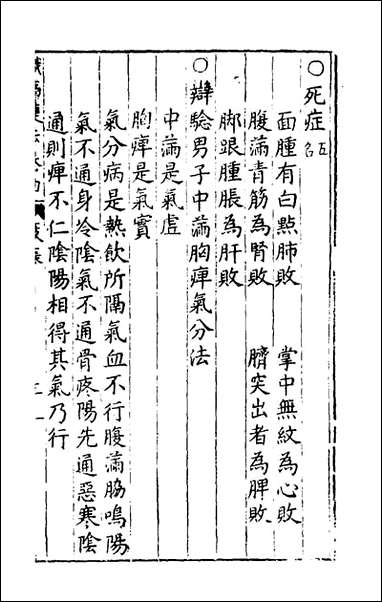 ○死症五
面腫有白㸃肺敗　掌中無紋為心敗
腹滿青筋為腎敗　臍突出者為脾敗
脚跟腫脹為肝敗
○辯騐男子中滿胸痺氣分法
中滿是氣虛
胸痺是氣實
氣分病是熱飲所隔氣血不行腹滿脇鳴陽
氣不通身冷陰氣不通骨疼陽先通惡寒陰
通則痺不仁陰陽相得其氣乃行